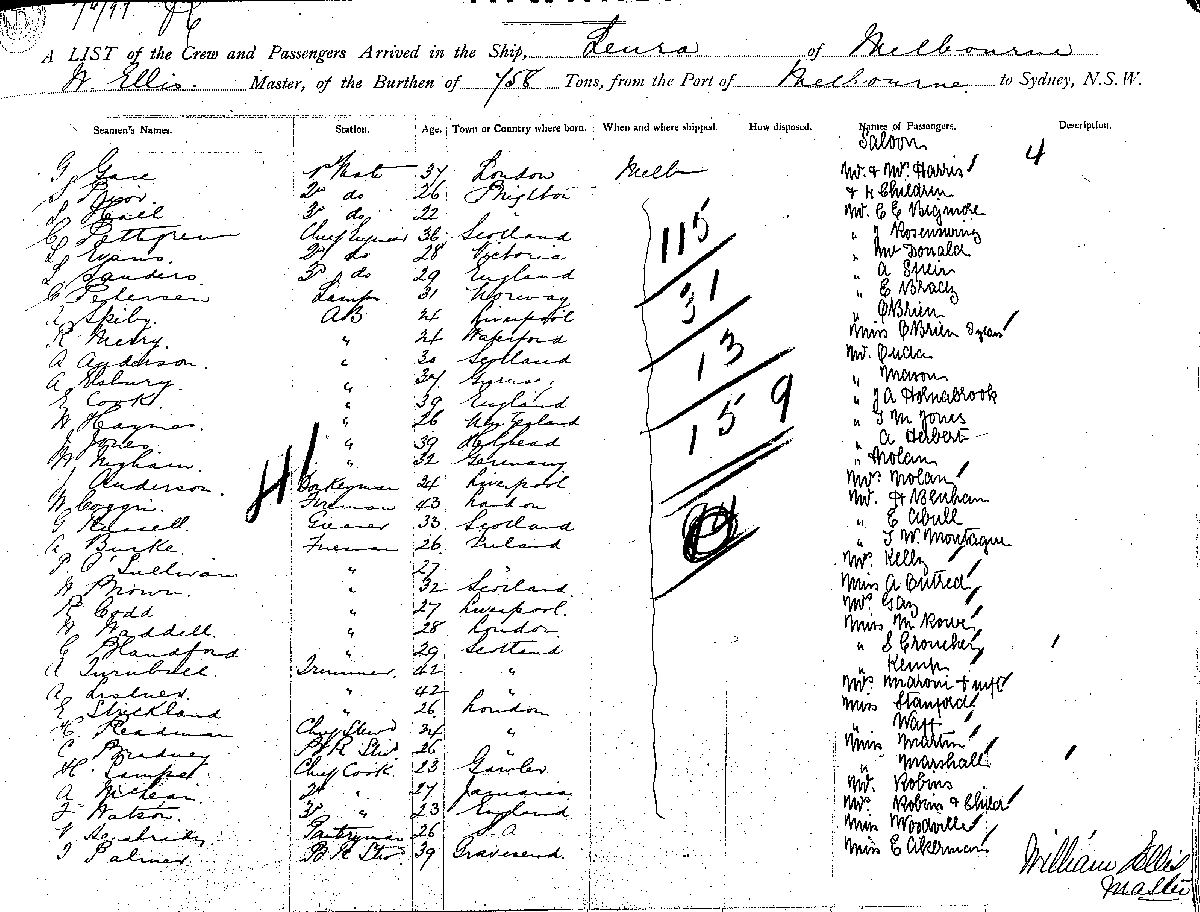 A LIST of the Crew and Passengers Arrived in the Ship, Leura of Melbourne
W. Ellis. Master, of the Burthen of 758 Tons, from the Port of Melbourne to Sydney, N.S.W.
Seamen's Names. Station. Age. Town or Country where born. When and where shipped. How disposed. Names of Passengers. Description.
Saloon
4
1st Mate 37 London Melb Mr. & Mrs. Harris
2nd do 26 Brighton & 4 Children
Hall 3rd do 22 Mr. C E Bigmore
Pettigrew Chief Engineer 36 Scotland " J Rosenwing
Evans. 2nd do 28 Victoria " McDonald
Sanders 3rd do 29 England " A Stein
Petersen Lamps 31 Norway " E Brady
Skiby. AB 24 Liverpool " O'Brien
R Merry " 24 Waterford Miss O'Brien
A Anderson. " 30 Scotland Mr.
A Asbury. " 37 " Mason
E Cook " 39 England " J A Hornabrook
W Haynes " 26 New Zealand " T M Jones
Jones " 39 Holyhead " A Herbert
Migham. " 32 Germany " Nolan
J Anderson. Donkeyman 24 Liverpool Mrs Nolan
W Coggin. Fireman 43 London Mr. H Benham
G Russell. Greaser 33 Scotland " E Abull
A Burke. Fireman 26 Ireland " T. W. Montague
P. O'Sullivan " 27 Mrs. Kelly
W Brown. " 32 Scotland Miss A Butred
R Codd " 27 Liverpool. Mrs. Gay
W Waddell. " 28 London Miss M Rowe
G Blandford " 29 Scotland " S Croucher
A Turnbull. Trimmer. 42 " " Kemp
A Listner. " 42 " Mrs. Maroni & inft
E Strickland " 26 London Miss Stanford
H. Readman Chief Stewd 34 " " Watt
C Bradney B R Stwd 26 Miss Martin
H. Lampel Chief Cook. 23 Gawler " Marshall
A McLean 2nd " 27 Jamaica Mr. Robins
F Watson. 3rd " 23 England Mrs Robins & Child
Pantryman 26 " Miss Woodville
J Palmer B R Stwd 39 Gravesend. Miss E Akerman
41
115
31
13
159
William Ellis
Master